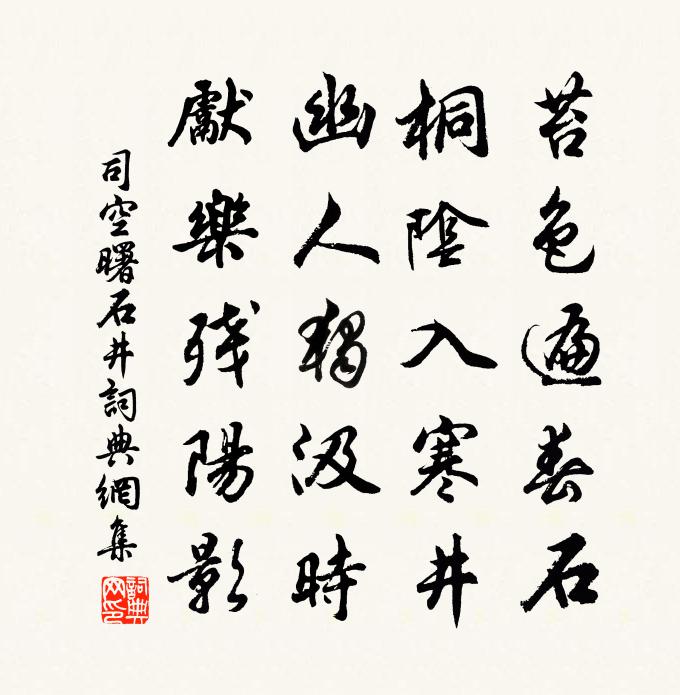 苔色遍春石
桐陰入寒井
幽人獨汲時
獻樂殘陽影
司空曙石井詞典網集
詞典網印